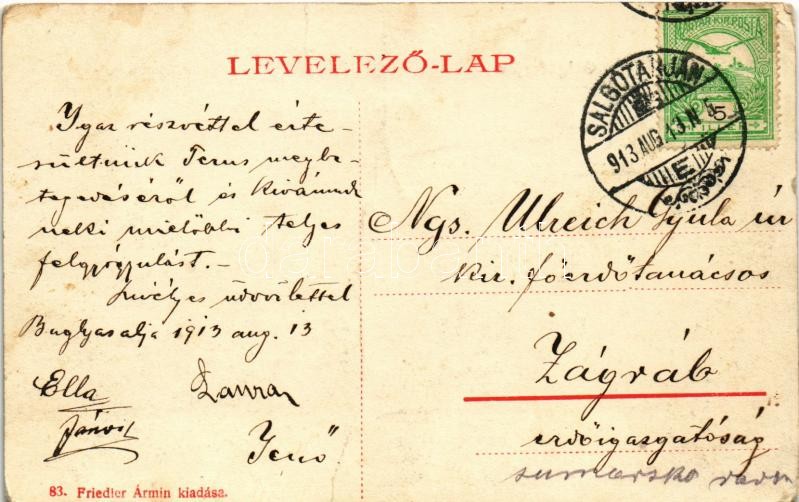 LEVELEZŐ-LAP
MAGYAR KIR. POSTA
SALGÓTARJÁN
913 AUG 13 N 5
E
5
FILLÉR
Igaz részvéttel érte-
sültünk Terus megbe-
tegedéséről és kivánunk
neki mielőbbi teljes
felgyógyulást.-
Szivélyes üdvözlettel
Baglyasalja 1913 aug. 13
Ella
Laura
János
Jenő
Ngs. Ulreich Gyula úr
kir. főerdőtanácsos
Zágráb
erdőigazgatóság
sumarsko
83. Friedler Ármin kiadása.
darabanth